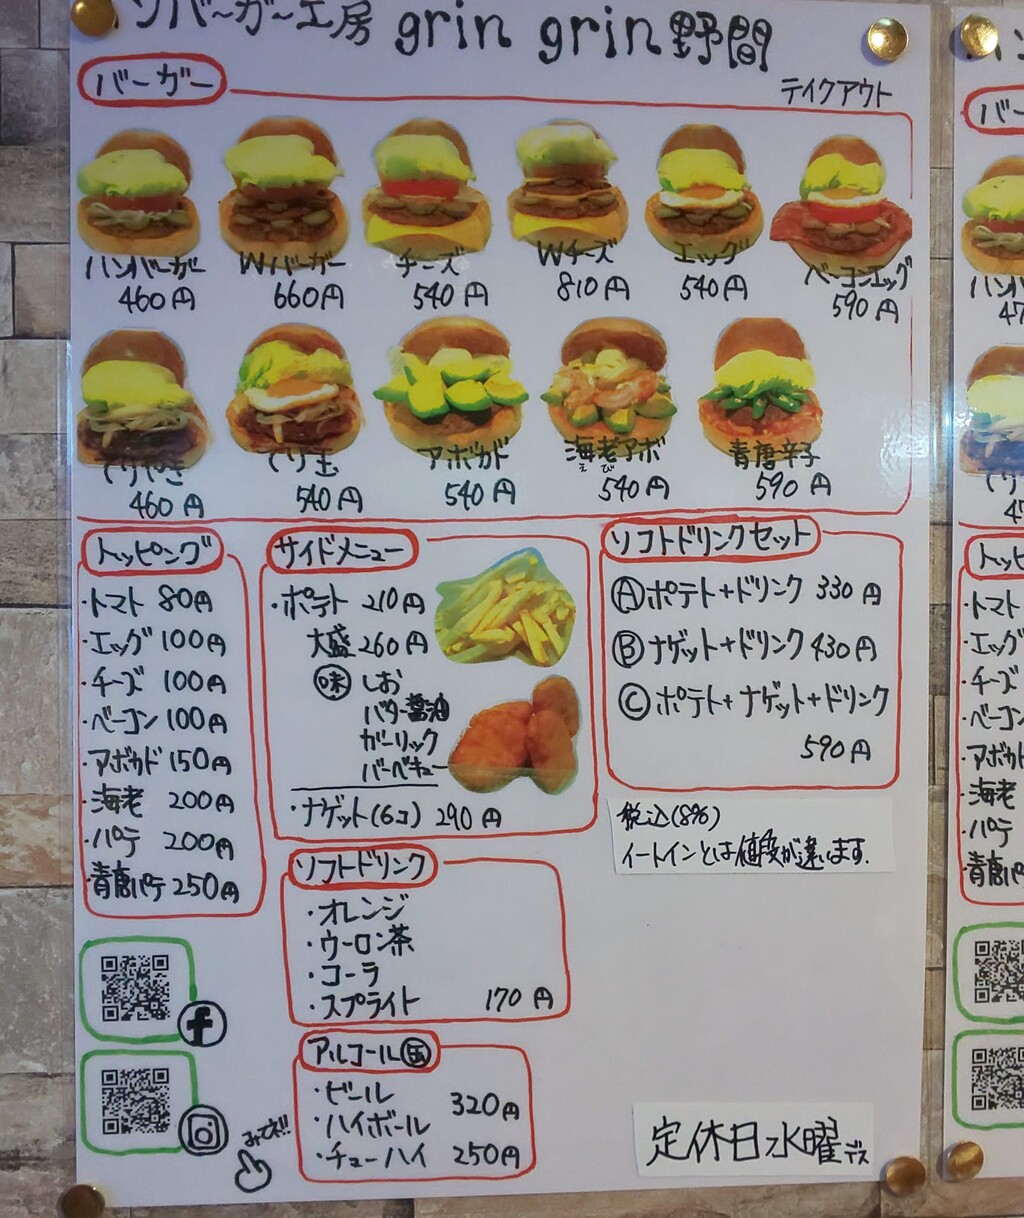 ンバーガー工房 grin grin 野間
バーガー
テイクアウト
ハンバーガー Wバーガー チーズ Wチーズ エッグ ベーコンエッグ
460円 660円 540円 810円 540円 590円
てりやき てり玉 アボカド 海老アボ 青唐辛子
えび
460円 540円 540円 540円 590円
トッピング
・トマト 80円
・エッグ 100円
・チーズ 100円
・ベーコン 100円
・アボカド 150円
・海老 200円
・パテ 200円
・青唐パテ 250円
サイドメニュー
・ポテト 210円
大盛 260円
味 しお
バター醤油
ガーリック
バーベキュー
・ナゲット(6コ) 290円
ソフトドリンクセット
Ⓐポテト+ドリンク 330円
Ⓑナゲット+ドリンク 430円
Ⓒポテト+ナゲット+ドリンク
590円
税込(8%)
イートインとは値段が違います.
ソフトドリンク
・オレンジ
・ウーロン茶
・コーラ
・スプライト 170円
アルコール缶
・ビール
・ハイボール 320円
・チューハイ 250円
みてね!!
定休日水曜デス
バー
ハンバ
47
てり
トッピ
・トマト
・エッグ
・チーズ
・ベーコン
・アボカド
・海老
・パテ
・青唐パテ